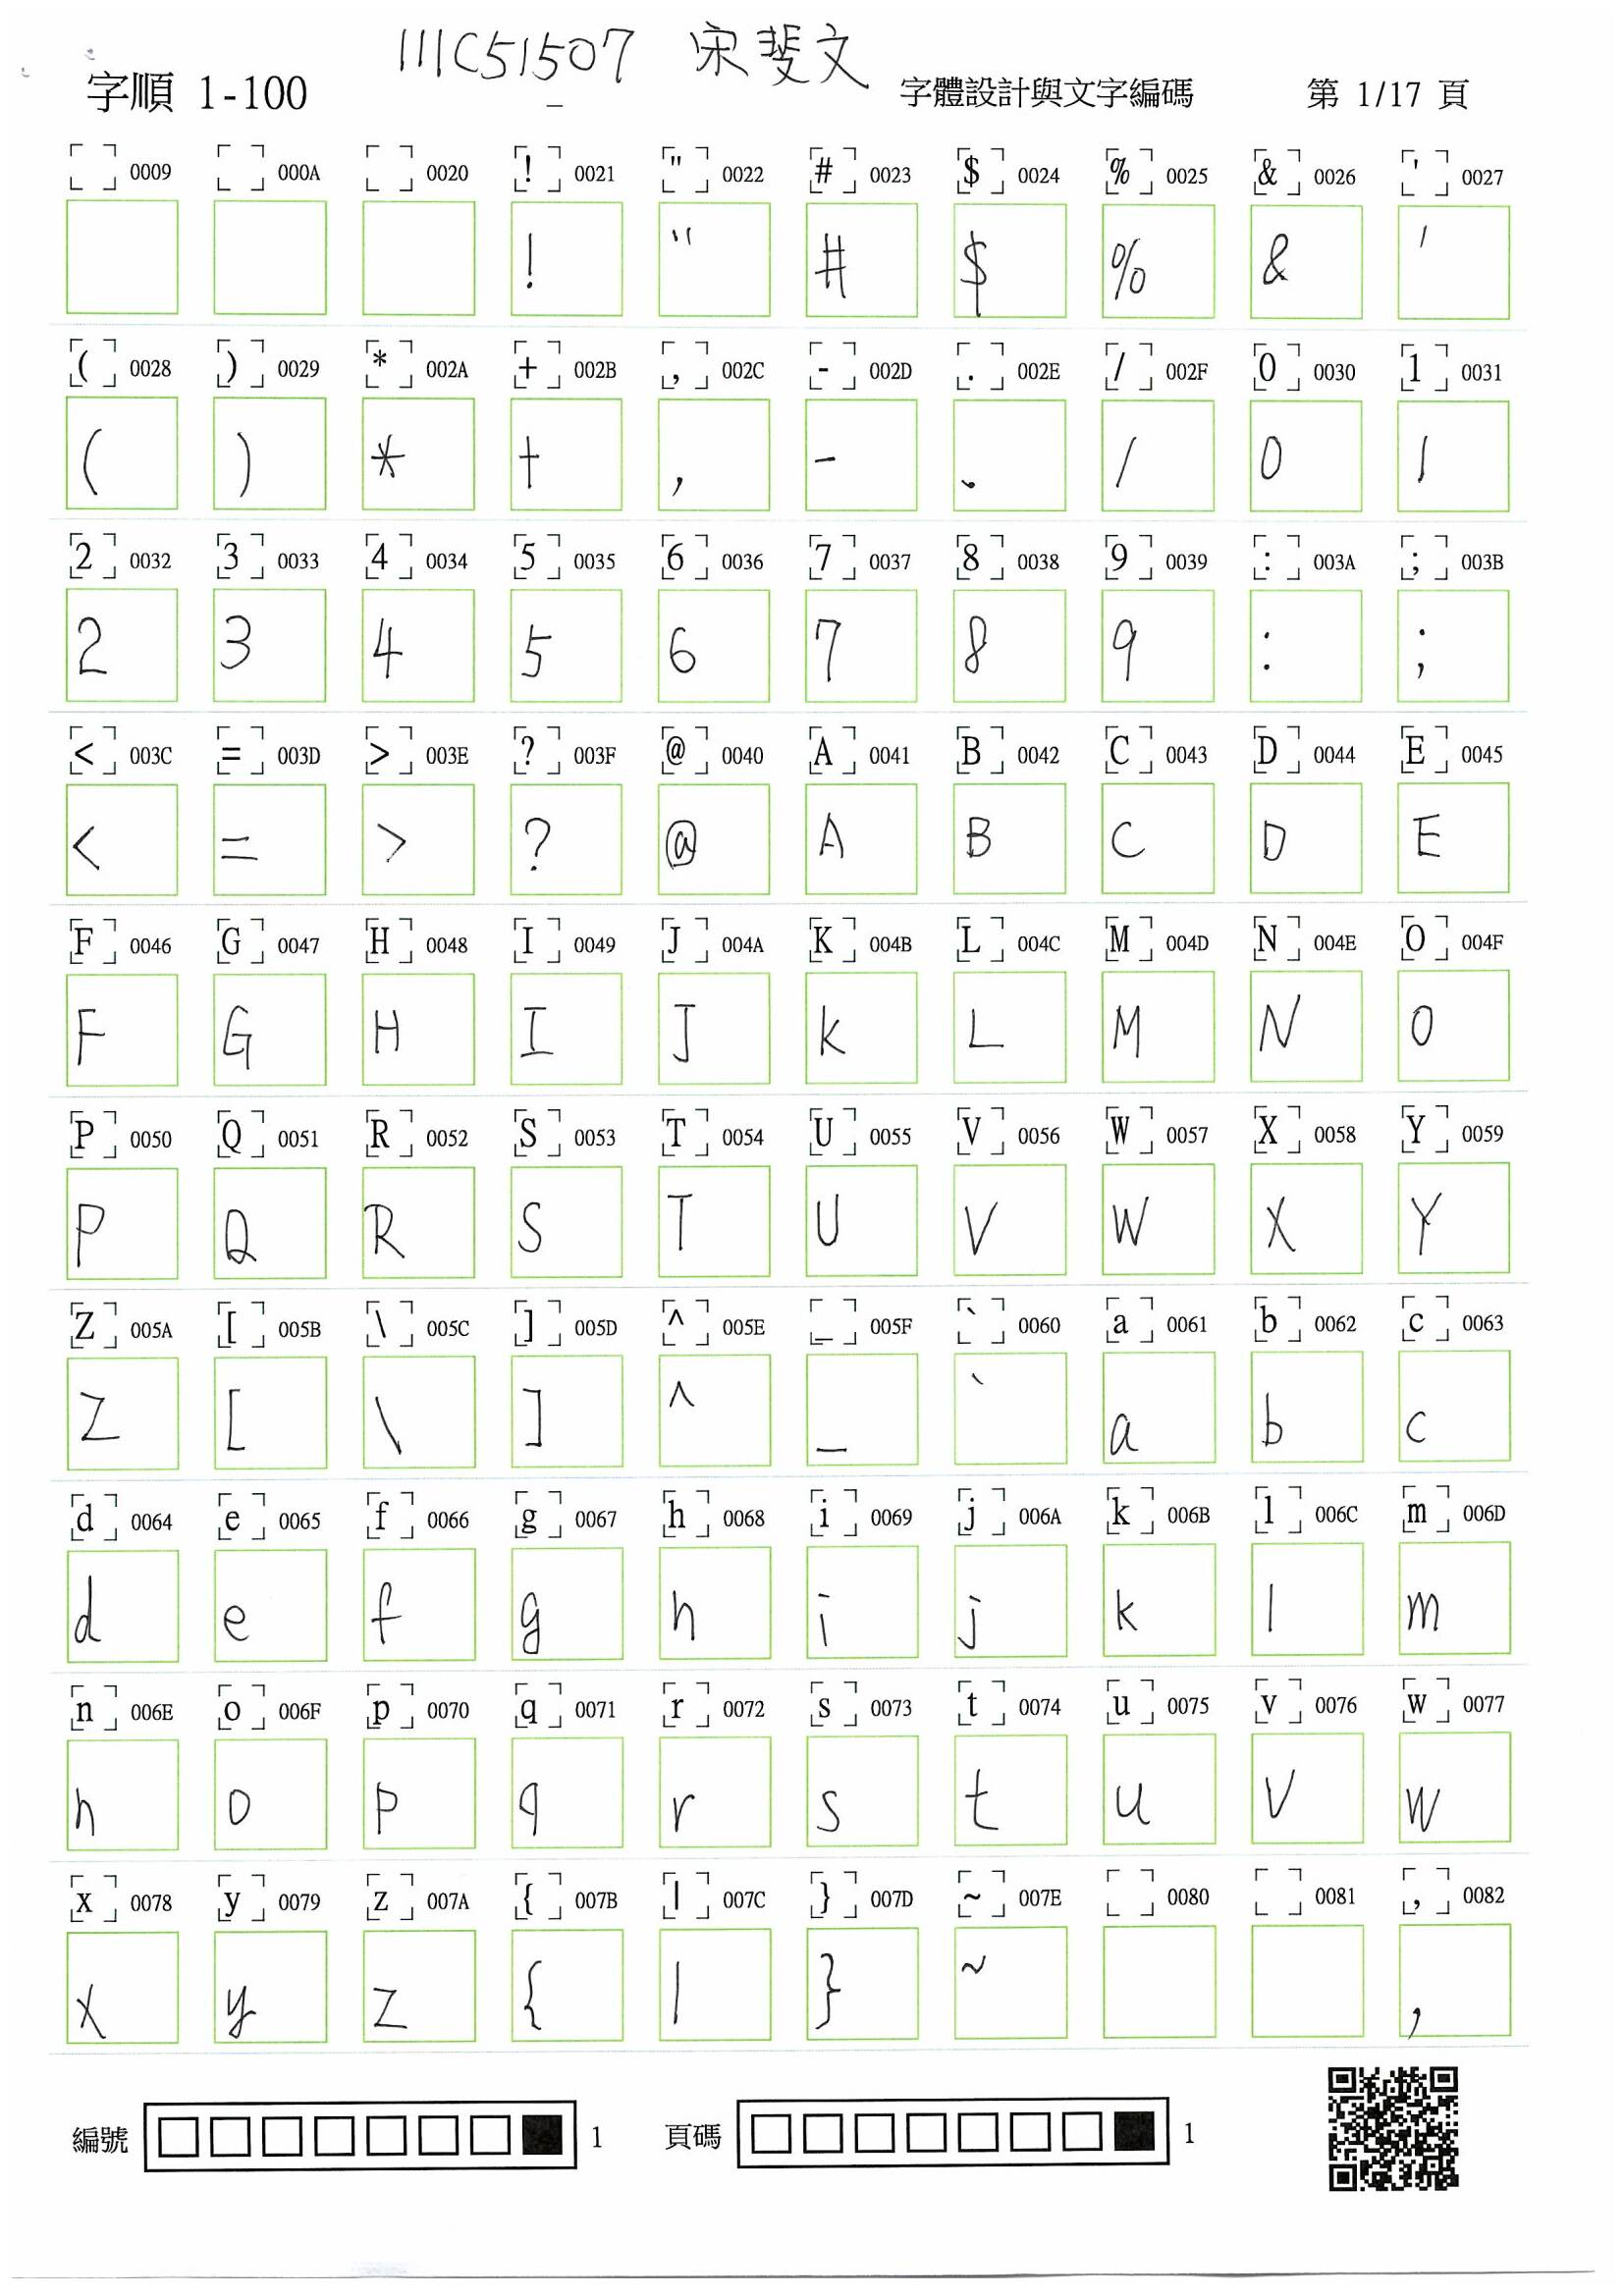 111C51507 宋斐文
字順 1-100 字體設計與文字編碼 第 1/17 頁
0009 000A 0020 ! 0021 " 0022 # 0023 $ 0024 % 0025 & 0026 ' 0027
! " # $ % & '
( 0028 ) 0029 * 002A + 002B , 002C - 002D . 002E / 002F 0 0030 1 0031
( ) * + , - . / 0 1
2 0032 3 0033 4 0034 5 0035 6 0036 7 0037 8 0038 9 0039 : 003A ; 003B
2 3 4 5 6 7 8 9 : ;
< 003C = 003D > 003E ? 003F @ 0040 A 0041 B 0042 C 0043 D 0044 E 0045
< = > ? @ A B C D E
F 0046 G 0047 H 0048 I 0049 J 004A K 004B L 004C M 004D N 004E O 004F
F G H I J K L M N O
P 0050 Q 0051 R 0052 S 0053 T 0054 U 0055 V 0056 W 0057 X 0058 Y 0059
P Q R S T U V W X Y
Z 005A [ 005B \ 005C ] 005D ^ 005E _ 005F ` 0060 a 0061 b 0062 c 0063
Z [ \ ] ^ _ ` a b c
d 0064 e 0065 f 0066 g 0067 h 0068 i 0069 j 006A k 006B l 006C m 006D
d e f g h i j k l m
n 006E o 006F p 0070 q 0071 r 0072 s 0073 t 0074 u 0075 v 0076 w 0077
n o p q r s t u v w
x 0078 y 0079 z 007A { 007B | 007C } 007D ~ 007E 0080 0081 ‚ 0082
x y z { | } ~ ‚
編號 1 頁碼 1